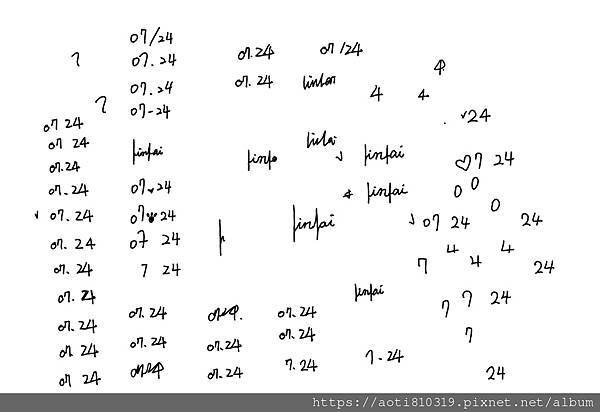 07/24
7 07.24 07.24 07/24
07.24 07.24 4
7 07-24 4 4
07 24 24
07 24 finfai finfai
07.24 finfai 7 24
07.24 07 24 finfai 0 0
07.24 07 24 finfai 0
07.24 07 24 07 24 24
07.24 7 24 4 4
7 4 24
07.24 finfai 7 24
07.24 07.24 07.24 7
07.24 07.24 07.24 07.24 7
07.24 07.24 7.24 7.24
07 24 24
https://aoti810319.pixnet.net/album